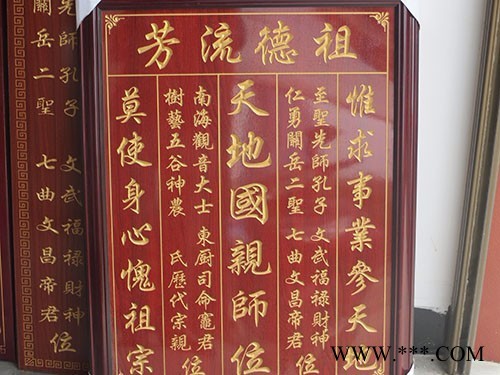 祖德流芳
惟求事業參天地
至聖先師孔子 文武福祿財神
仁勇關岳二聖 七曲文昌帝君
位
天地國親師位
南海觀音大士 東厨司命竈君
樹藝五谷神農 氏歷代宗親
位
莫使身心愧祖宗
先師孔子 文武福祿財神
關岳二聖 七曲文昌帝君
位
WWW.***.COM